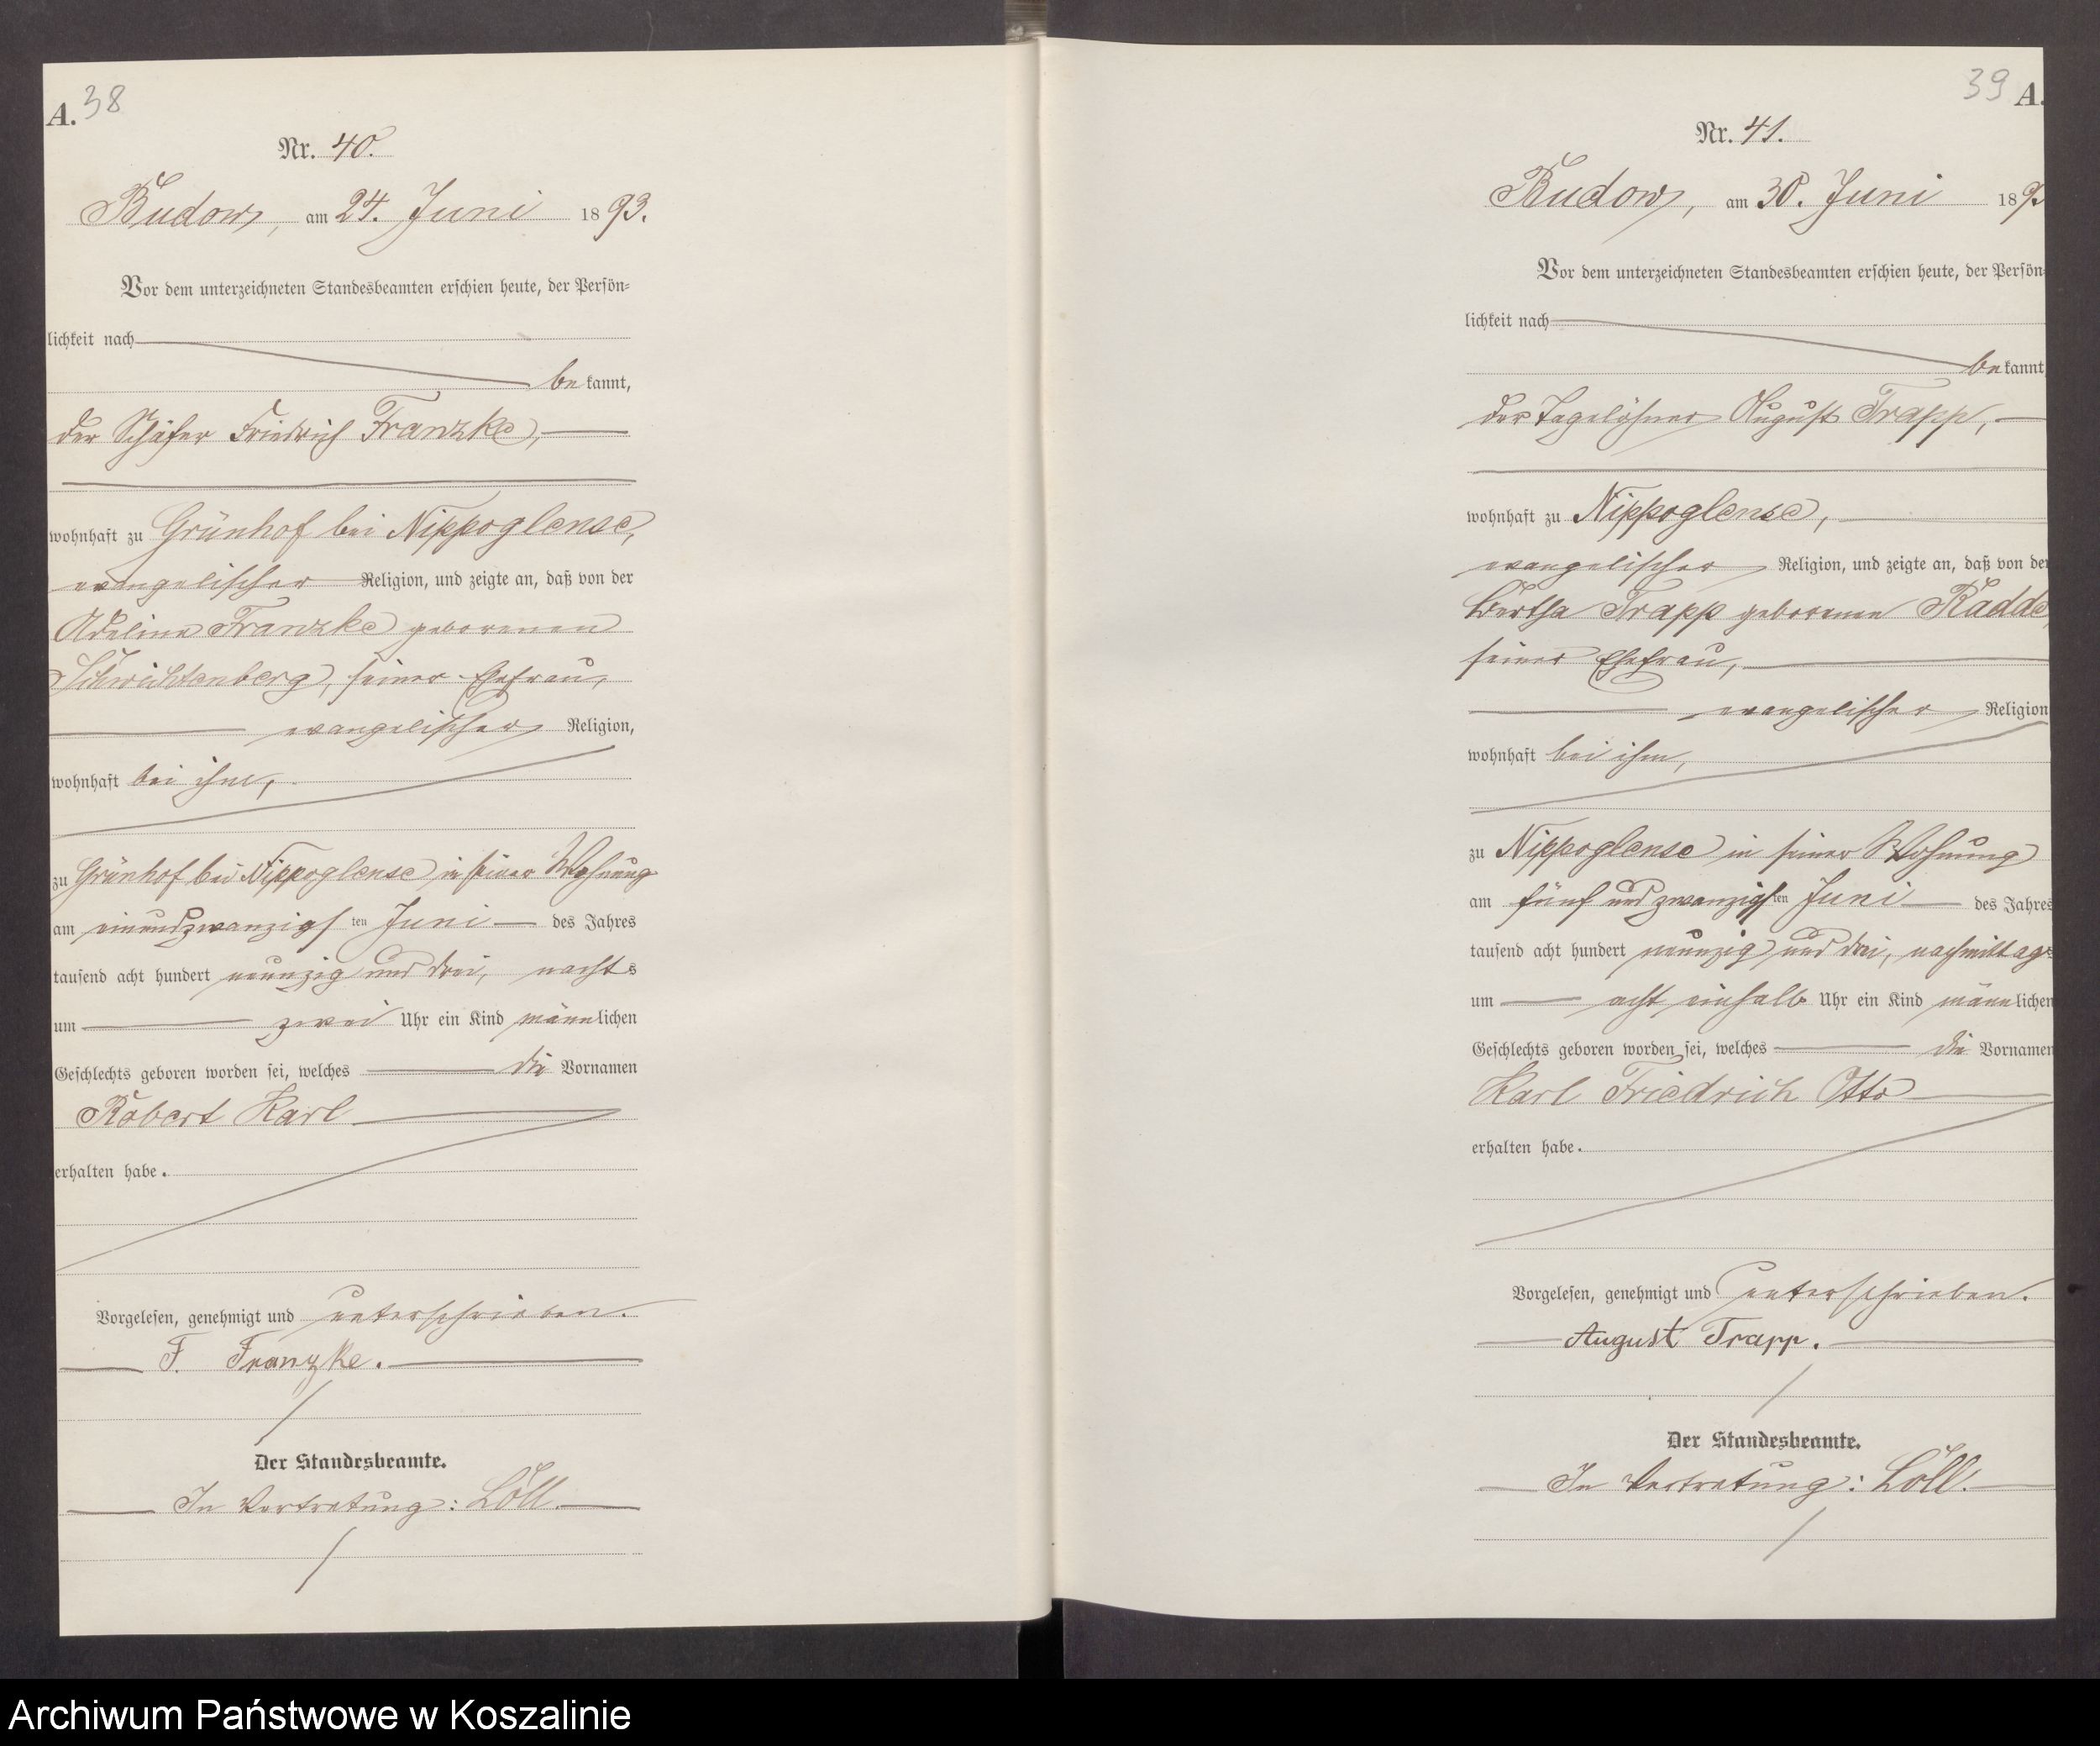 A. 38
Nr. 40.
Budow, am 24. Juni 1893.
Vor dem unterzeichneten Standesbeamten erschien heute, der Persön-
lichkeit nach
bekannt,
der Schäfer Friedrich Franzke,
wohnhaft zu Grünhof bei Nippoglense,
evangelischer Religion, und zeigte an, daß von der
Adeline Franzke geborenen
Schwichtenberg, seiner Ehefrau,
evangelischer Religion,
wohnhaft bei ihm,
zu Grünhof bei Nippoglense in seiner Wohnung
am einundzwanzigsten Juni des Jahres
tausend acht hundert neunzig und drei, nachts
um zwei Uhr ein Kind männlichen
Geschlechts geboren worden sei, welches die Vornamen
Robert Karl
erhalten habe.
Vorgelesen, genehmigt und unterschrieben.
F. Franzke.
Der Standesbeamte.
In Vertretung: Löll.
39 A.
Nr. 41.
Budow, am 30. Juni 189
Vor dem unterzeichneten Standesbeamten erschien heute, der Persön-
lichkeit nach
bekannt,
der Tagelöhner August Trapp,
wohnhaft zu Nippoglense,
evangelischer Religion, und zeigte an, daß von der
Bertha Trapp geborenen Radde,
seiner Ehefrau,
evangelischer Religion
wohnhaft bei ihm,
zu Nippoglense in seiner Wohnung
am fünf und zwanzigsten Juni des Jahres
tausend acht hundert neunzig und drei, nachmittags
um acht einhalb Uhr ein Kind männlichen
Geschlechts geboren worden sei, welches die Vornamen
Karl Friedrich Otto
erhalten habe.
Vorgelesen, genehmigt und unterschrieben.
August Trapp.
Der Standesbeamte.
In Vertretung: Löll.
Archiwum Państwowe w Koszalinie